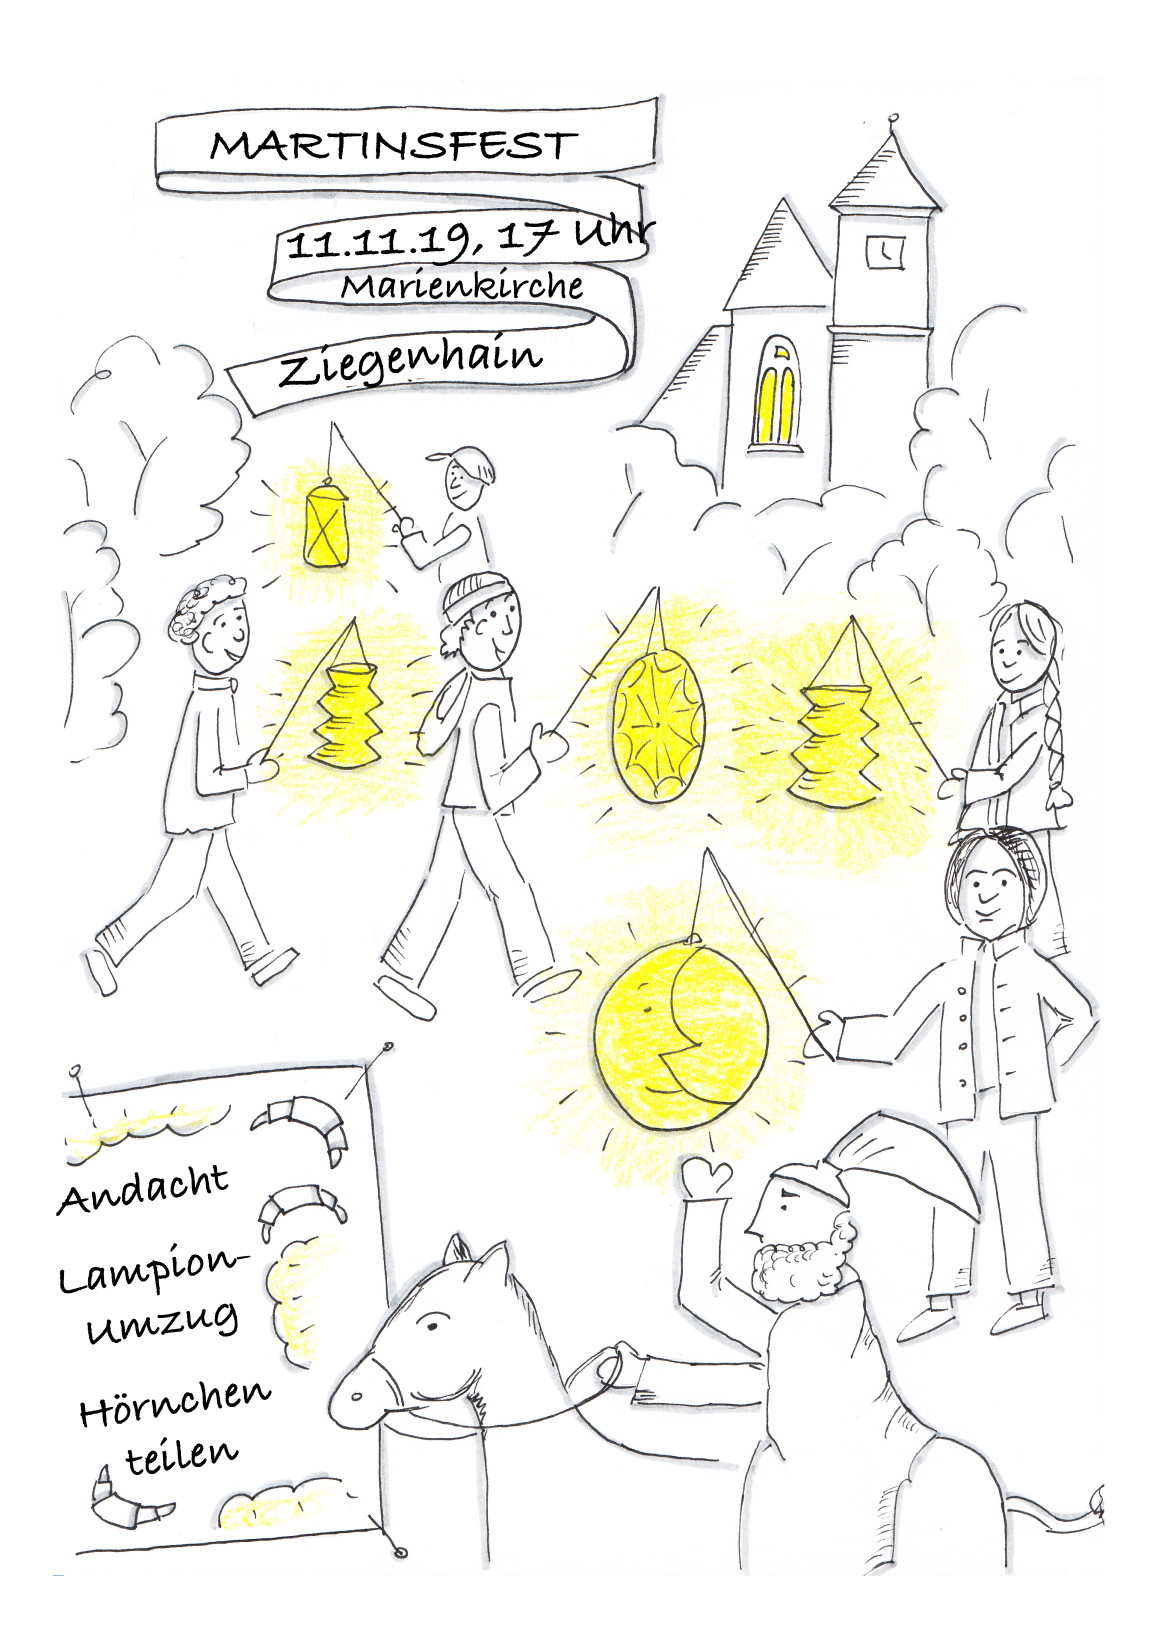 MARTINSFEST
11.11.19, 17 Uhr
Marienkirche
Ziegenhain
Andacht
Lampion-
umzug
Hörnchen
teilen